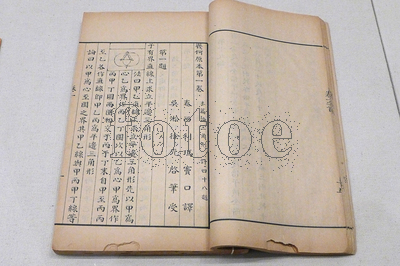 幾何原本第一卷 本篇論三角形 計四十八題
泰西利瑪竇口譯
吳淞徐光啓筆受
第一題
于有界直線上求立平邊三角形
法曰甲乙直線上求立平邊三角形先以甲爲
心乙爲界作丙乙丁圜次以乙爲心甲爲界作
丙甲丁圜兩圜相交于丙于丁末自甲至丙丙
至乙各作直線即甲乙丙爲平邊三角形
論曰以甲爲心至圜之界其甲乙線與甲丙甲丁線等
卷一
fotoe